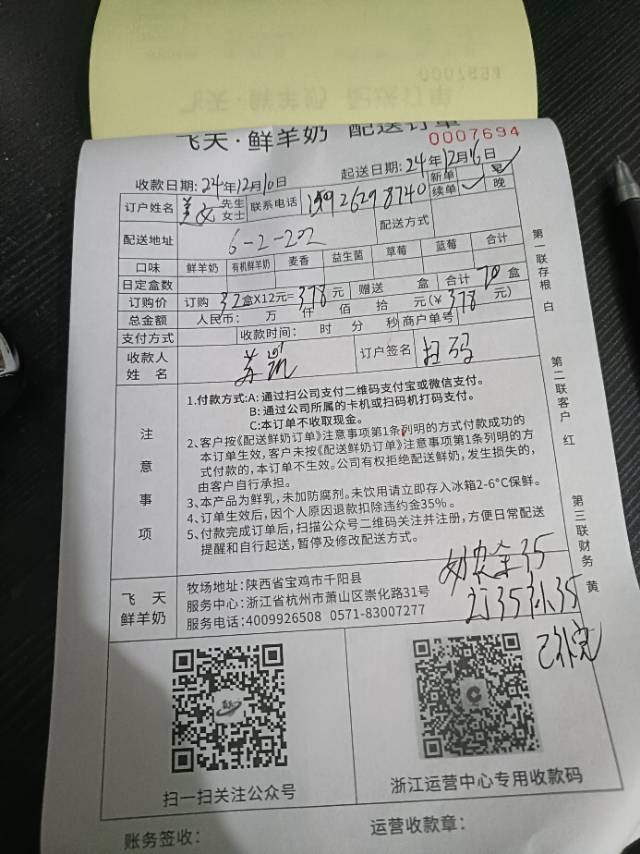 飞天·鲜羊奶 配送订单
0007694
收款日期:24年12月10日 起送日期:24年12月16日
订户姓名 美女 先生 女士 联系电话 15926298740 新单 续单 ✓ 早 ✓ 晚
配送地址 6-2-202 配送方式
口味 鲜羊奶 有机鲜羊奶 麦香 益生菌 草莓 蓝莓 合计
日定盒数
订购价 订购 32盒X12元=378元 赠送 盒 合计 70盒
总金额 人民币: 万 仟 佰 拾 元(¥378元)
支付方式 收款时间: 时 分 秒 商户单号
收款人姓名 订户签名 扫码
注意事项
1.付款方式:A:通过扫公司支付二维码支付宝或微信支付。
B:通过公司所属的卡机或扫码机打码支付。
C:本订单不收取现金。
2、客户按《配送鲜奶订单》注意事项第1条列明的方式付款成功的
本订单生效,客户未按《配送鲜奶订单》注意事项第1条列明的方
式付款的,本订单不生效。公司有权拒绝配送鲜奶,发生损失的,
由客户自行承担。
3、本产品为鲜乳,未加防腐剂。未饮用请立即存入冰箱2-6°C保鲜。
4、订单生效后,因个人原因退款扣除违约金35%。
5、付款完成订单后,扫描公众号二维码关注并注册,方便日常配送
提醒和自行起送,暂停及修改配送方式。
飞天鲜羊奶
牧场地址:陕西省宝鸡市千阳县
服务中心:浙江省杭州市萧山区崇化路31号
服务电话:4009926508 0571-83007277
35
订35补35
已补完
扫一扫关注公众号
浙江运营中心专用收款码
账务签收: 运营收款章:
第一联存根 白
第二联客户 红
第三联财务 黄